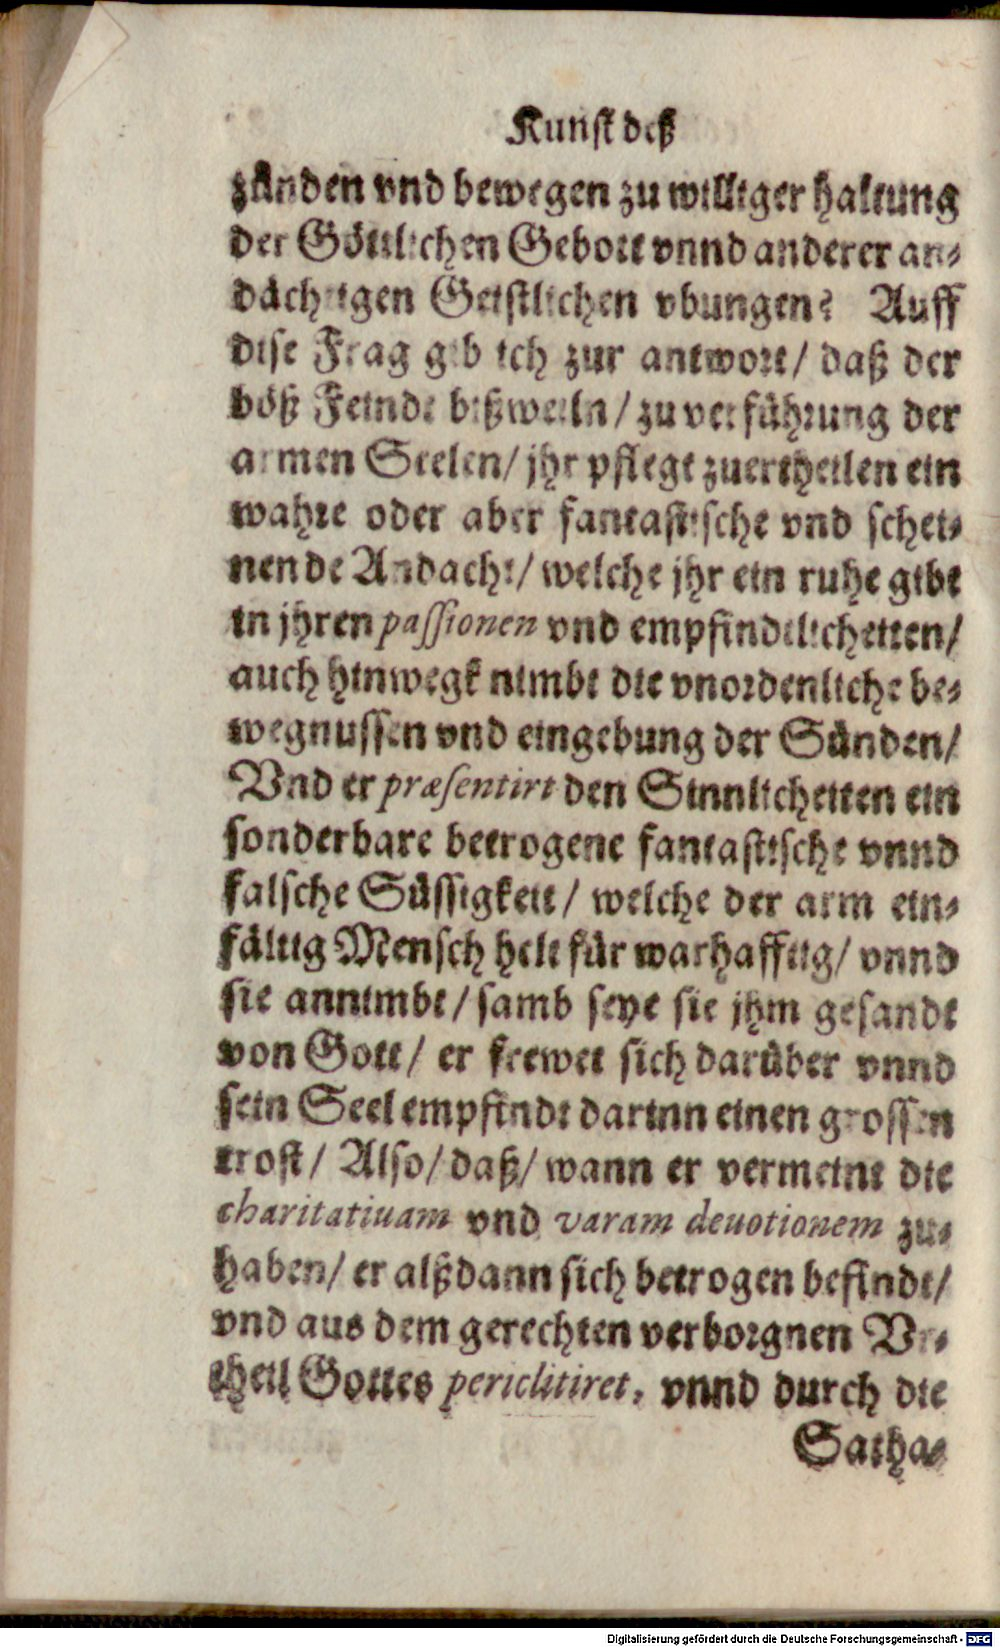 Kunst deß
zünden vnd bewegen zu williger haltung
der Göttlichen Gebott vnnd anderer an-
dächtigen Geistlichen vbungen? Auff
dise Frag gib ich zur antwort/ daß der
böß Feindt bißweiln/ zu verführung der
armen Seelen/ jhr pflegt zuertheilen ein
wahre oder aber fantastische vnd schei-
nende Andacht/ welche jhr ein ruhe gibt
in jhren passionen vnd empfindtlicheiten/
auch hinwegk nimbt die vnordenliche be-
wegnussen vnd eingebung der Sünden/
Vnd er præsentirt den Sinnlicheiten ein
sonderbare betrogene fantastische vnnd
falsche Süssigkeit/ welche der arm ein-
fältig Mensch helt für warhafftig/ vnnd
sie annimbt/ samb seye sie jhm gesandt
von Gott/ er frewet sich darüber vnnd
sein Seel empfindt darinn einen grossen
trost/ Also/ daß/ wann er vermeint die
charitatiuam vnd varam deuotionem zu-
haben/ er alßdann sich betrogen befindt/
vnd aus dem gerechten verborgnen Vr-
theil Gottes periclitiret, vnnd durch die
Satha-
Digitalisierung gefördert durch die Deutsche Forschungsgemeinschaft - DFG